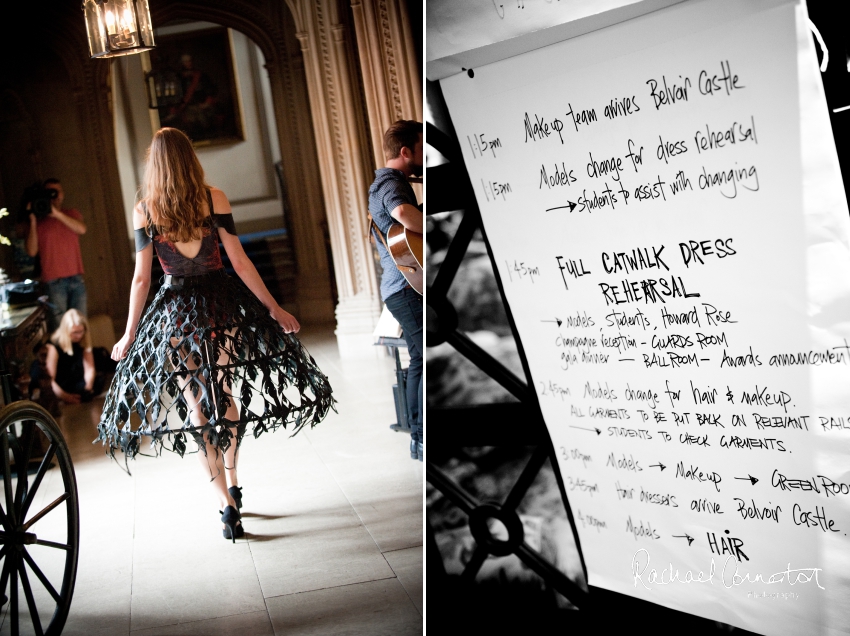 1:15pm Makeup team arrives Belvoir Castle
1:15pm Models change for dress rehearsal
→ students to assist with changing
1:45pm FULL CATWALK DRESS
REHEARSAL
→ Models, students, Howard Rose
champagne reception - GUARDS ROOM
gala dinner — BALLROOM - Awards announcement
2:45pm Models change for hair & makeup.
ALL GARMENTS TO BE PUT BACK ON RELEVANT RAILS
→ STUDENTS TO CHECK GARMENTS.
3:00pm Models → Makeup → GREEN ROO
3:45pm Hair dressers arrive Belvoir Castle.
4:00pm Models → HAIR
Rachael Connerton
Photography